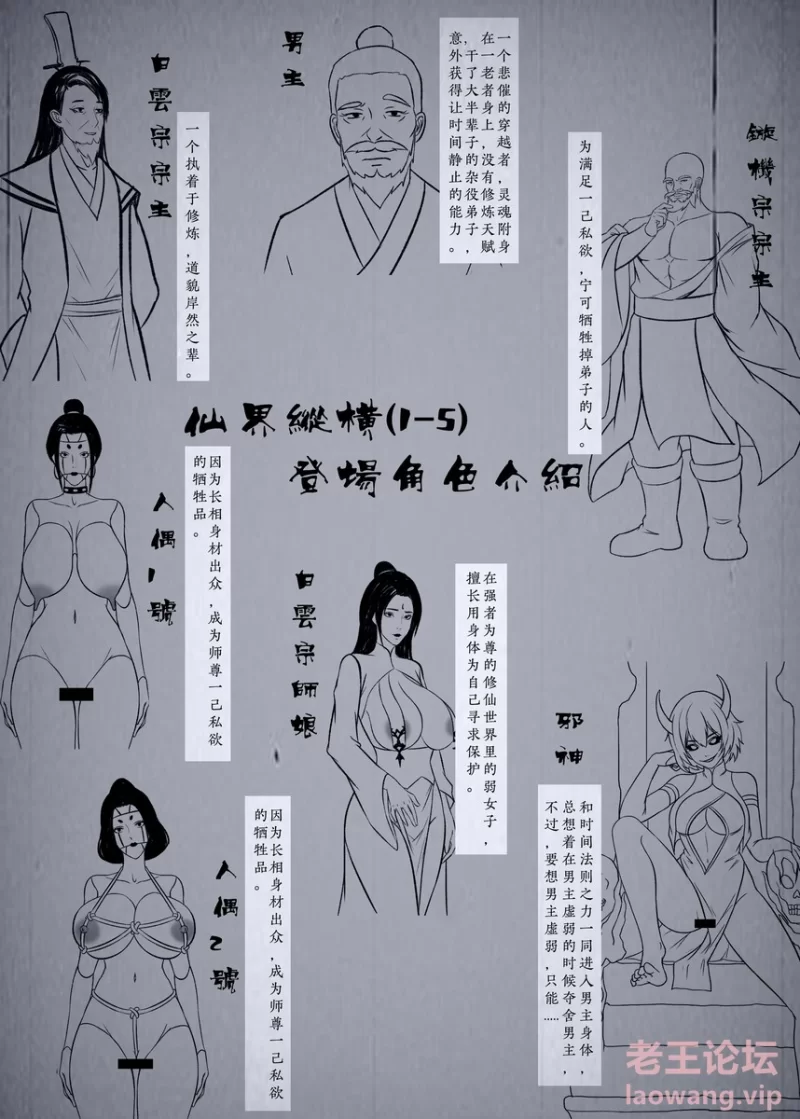 白雲宗宗主
一个执着于修炼，道貌岸然之辈。
男主
一个悲催的穿越者，灵魂附身
在一老者身上，没有修炼天赋
，干了大半辈子的杂役弟子，
意外获得让时间静止的能力。
璇機宗宗主
为满足一己私欲，宁可牺牲掉弟子的人。
仙界縱橫(1-5)
登場角色介紹
人偶1號
因为长相身材出众，成为师尊一己私欲
的牺牲品。
白雲宗師娘
在强者为尊的修仙世界里的弱女子，
擅长用身体为自己寻求保护。
邪神
和时间法则之力一同进入男主身体，
总想着在男主虚弱的时候夺舍男主，
不过，要想男主虚弱，只能……
人偶2號
因为长相身材出众，成为师尊一己私欲
的牺牲品。
老王论坛
laowang.vip